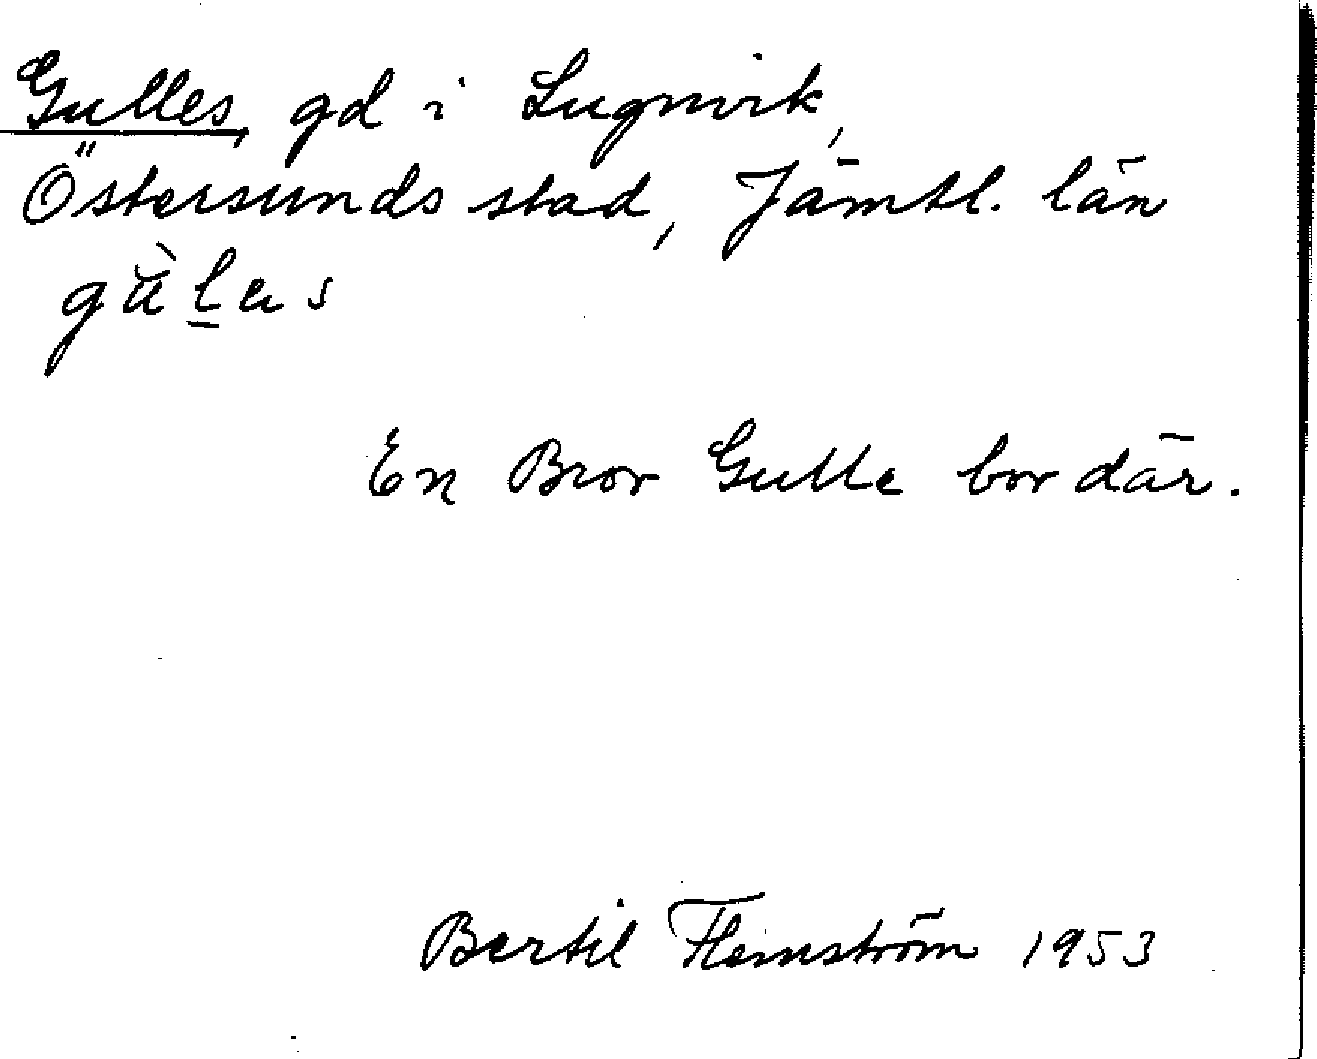 Gulles, gd i Lugnvik,
Östersunds stad, Jämtl. län
En Bror Gulle bor där.
Bertil Flemström 1953